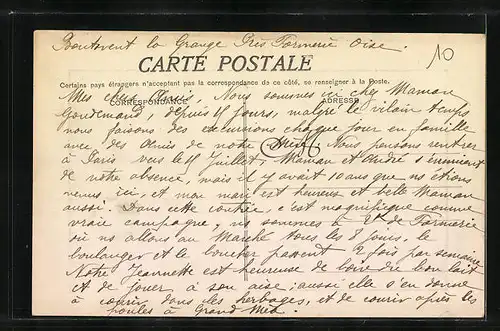 Boutavent la Grange Près Formerie Oise.
10
CARTE POSTALE
Certains pays étrangers n'acceptant pas la correspondance de ce côté, se renseigner à la Poste.
CORRESPONDANCE
ADRESSE
Mes chers Amis, Nous sommes ici chez Maman
Goudemand, depuis 15 jours, malgré le vilain temps
nous faisons des excursions chaque jour en famille
avec des Amis de notre Nous pensons rentrer
à Paris vers le 15 Juillet, Maman et André s'ennuient
de notre absence, mais il y avait 10 ans que ns étions
venus ici et mon mari est heureux et belle Maman
aussi. Dans cette contrée, c'est magnifique comme
vraie campagne, ns sommes à de Formerie
où ns allons au Marché tous les 8 jours, le
boulanger et le boucher passent 2 fois par semaine
Notre Jeannette est heureuse de boire du bon lait
et de jouer à son aise; aussi elle s'en donne
à courir dans les herbages, et de courir après les
poules à Grand Mère.